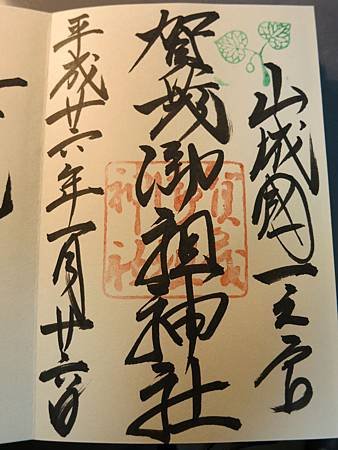 山城國一之宮
賀茂御祖神社
平成廿六年一月廿六日